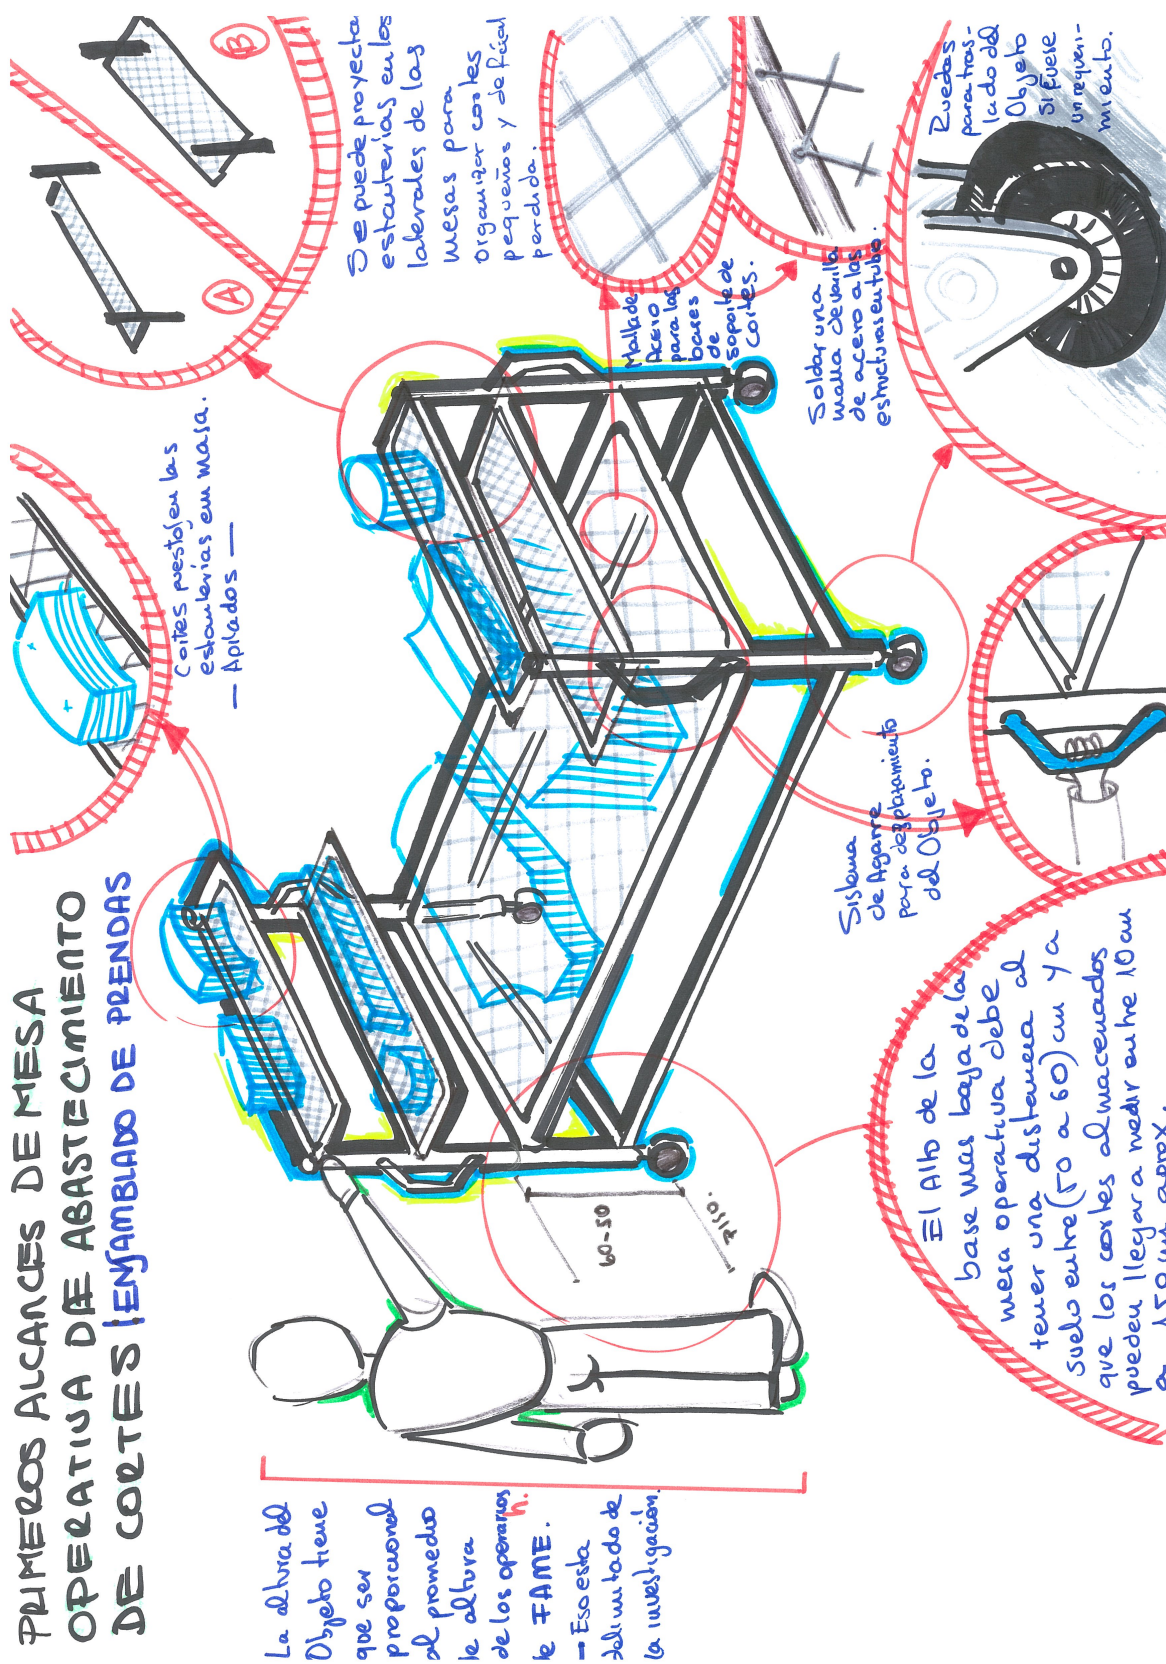 PRIMEROS ALCANCES DE MESA
OPERATIVA DE ABASTECIMIENTO
DE CORTES | ENSAMBLADO DE PRENDAS
La altura del
Objeto tiene
que ser
proporcional
al promedio
de altura
de los operarios
de FAME.
h.
→ Eso esta
delimitado de
la investigación.
60-50
PISO.
Cortes puestos en las
estanterías en masa.
— Apilados —
A
B
Se puede proyectar
estanterías en los
laterales de las
mesas para
organizar cortes
pequeños y de fácil
perdida.
Malla de
Acero
para las
bases
de
soporte de
cortes.
Soldar una
malla de varilla
de acero a las
estructuras en tubo.
Ruedas
para tras-
lado del
Objeto
si fuese
un requeri-
miento.
Sistema
de Agarre
para desplazamiento
del Objeto.
El Alto de la
base mas baja de la
mesa operativa debe
tener una distancia al
suelo entre (50 a 60) cm ya
que los cortes almacenados
pueden llegar a medir entre 10 cm
a 150 cm aprox.